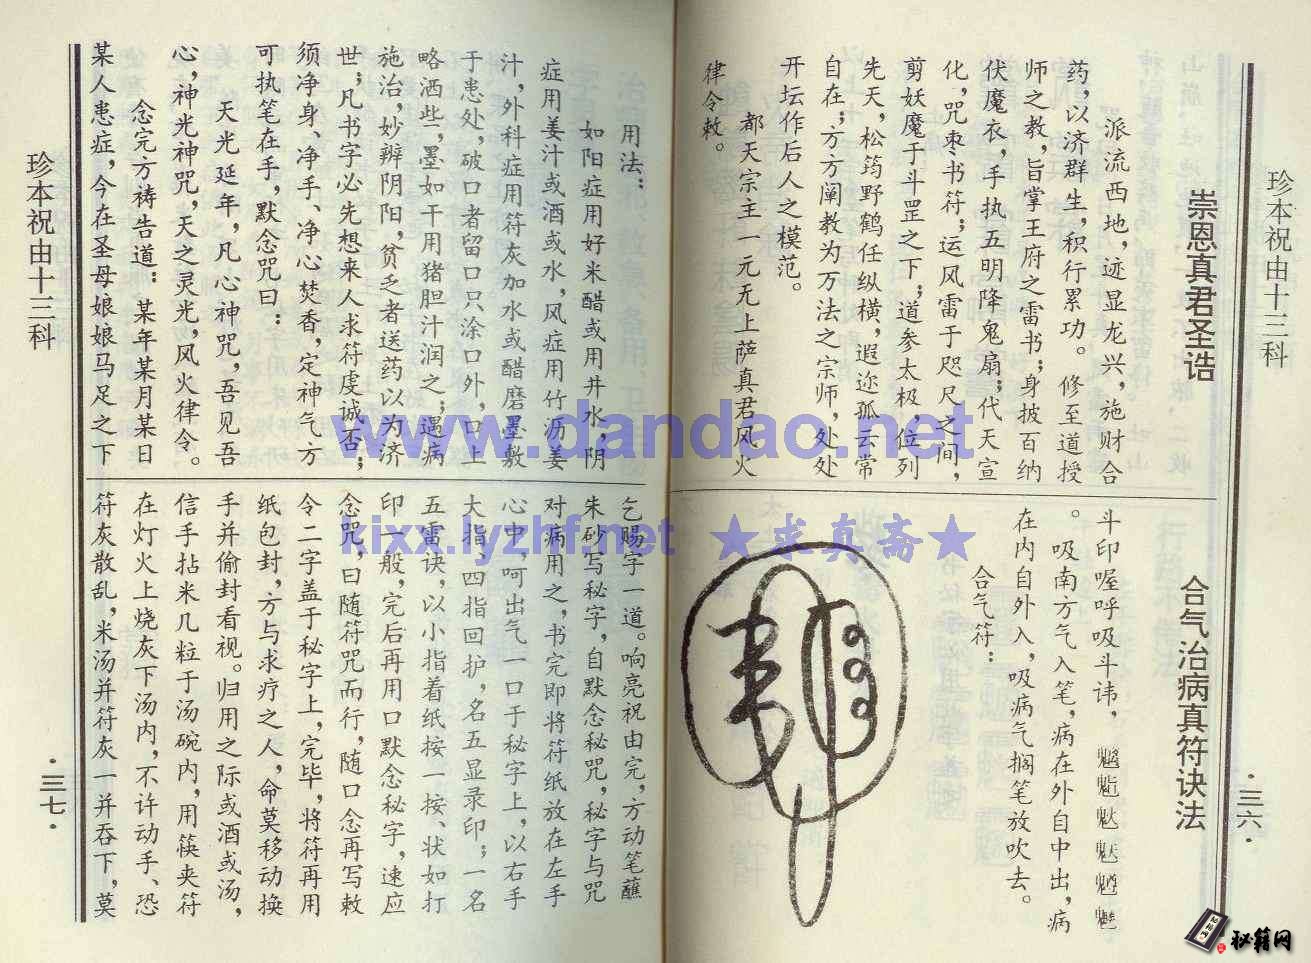 珍本祝由十三科
·三六·
崇恩真君圣诰
派流西地，迹显龙兴，施财合
药，以济群生，积行累功。修至道授
师之教，旨掌王府之雷书；身披百纳
伏魔衣，手执五明降鬼扇；代天宣
化，咒枣书符；运风雷于咫尺之间，
剪妖魔于斗罡之下；道参太极，位列
先天，松筠野鹤任纵横，遐迩孤云常
自在；方方阐教为万法之宗师，处处
开坛作后人之模范。
都天宗主一元无上萨真君风火
律令敕。
合气治病真符诀法
斗印喔呼吸斗讳，
。吸南方气入笔，病在外自中出，病
在内自外入，吸病气搁笔放吹去。
合气符：
用法：
如阳症用好米醋或用井水，阴
症用姜汁或酒或水，风症用竹沥姜
汁，外科症用符灰加水或醋磨墨敷
于患处，破口者留口只涂口外，口上
略洒些，墨如干用猪胆汁润之；遇病
施治，妙辨阴阳，贫乏者送药以为济
世；凡书字必先想来人求符虔诚否；
须净身、净手、净心焚香，定神气方
可执笔在手，默念咒曰：
天光延年，凡心神咒，吾见吾
心，神光神咒，天之灵光，风火律令。
念完方祷告道：某年某月某日
某人患症，今在圣母娘娘马足之下
乞赐字一道。响亮祝由完，方动笔蘸
朱砂写秘字，自默念秘咒，秘字与咒
对病用之，书完即将符纸放在左手
心中，呵出气一口于秘字上，以右手
大指、四指回护，名五显录印；一名
五雷诀，以小指着纸按一按、状如打
印一般，完后再用口默念秘字，速应
念咒，曰随符咒而行，随口念再写敕
令二字盖于秘字上，完毕，将符再用
纸包封，方与求疗之人，命莫移动换
手并偷封看视。归用之际或酒或汤，
信手拈米几粒于汤碗内，用筷夹符
在灯火上烧灰下汤内，不许动手、恐
符灰散乱，米汤并符灰一并吞下，莫
珍本祝由十三科
·三七·
www.dandao.net
kixx.lyzhf.net ★求真斋★
秘籍网